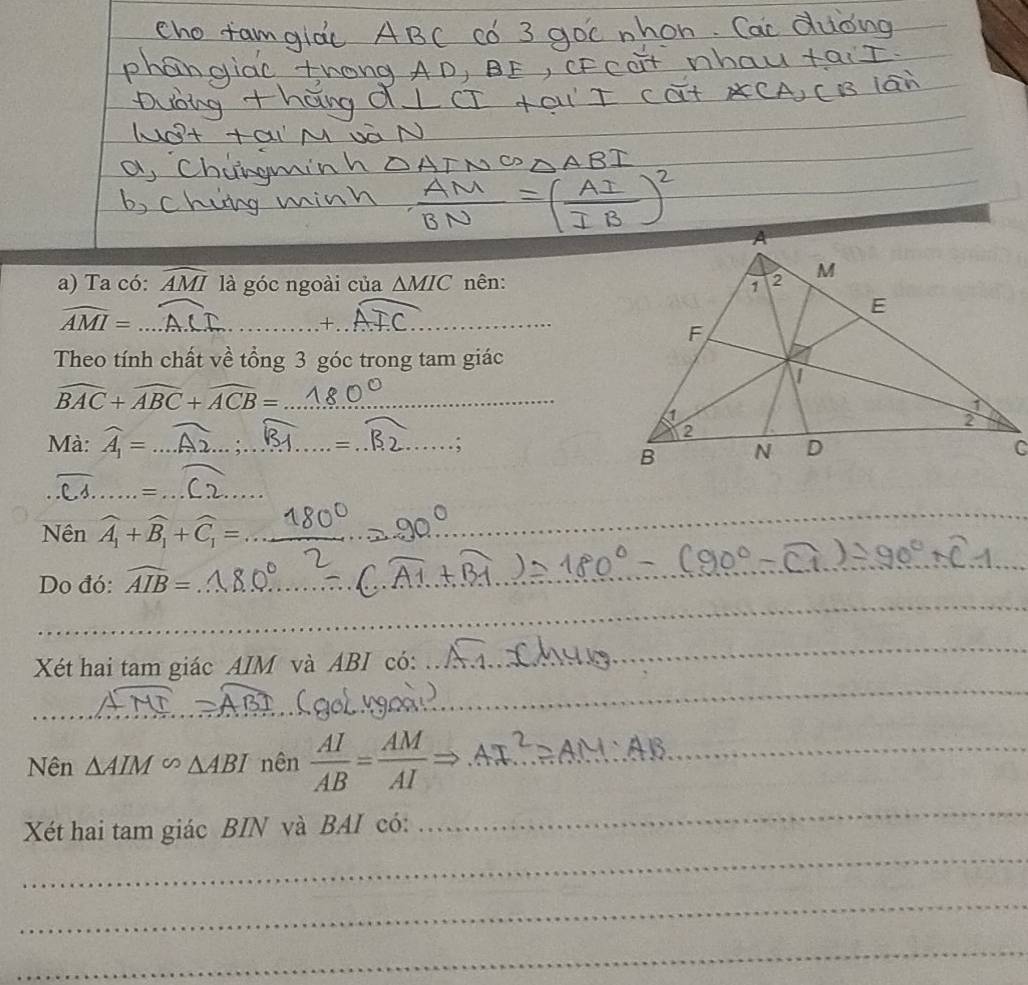 Cho tam giác ABC có 3 góc nhọn. Các đường
phân giác trong AD, BE, CF cắt nhau tại I.
Đường thẳng d ⊥ CI tại I cắt CA, CB lần
lượt tại M và N
a, Chứng minh △AIM ∽ △ABI
b, Chứng minh AM/BN = (AI/IB)²
a) Ta có: \widehat{AMI} là góc ngoài của ΔMIC nên:
\widehat{AMI} = ....\widehat{ACI}..............+..\widehat{AIC}....................
Theo tính chất về tổng 3 góc trong tam giác
\widehat{BAC} + \widehat{ABC} + \widehat{ACB} = ...180⁰..............................
Mà: \widehat{A₁} = ....\widehat{A2}...;...\widehat{B1}..... = ..\widehat{B2}......;
..\widehat{C1}...... = ...\widehat{C2}.....
Nên \widehat{A₁} + \widehat{B₁} + \widehat{C₁} = ...180⁰/2... = 90⁰..............
Do đó: \widehat{AIB} = ..180⁰...... - (\widehat{A1} + \widehat{B1}) = 180⁰ - (90⁰ - \widehat{C1}) = 90⁰ + \widehat{C}1....
Xét hai tam giác AIM và ABI có: ..\widehat{A1}... chung..............
......\widehat{AMI} = \widehat{ABI}..(góc ngoài)..............
Nên ΔAIM ∽ ΔABI nên AI/AB = AM/AI ⇒ .AI² = AM.AB..............
Xét hai tam giác BIN và BAI có: ..............
A
1 2
M
E
F
I
1
2
1
2
B
N
D
C